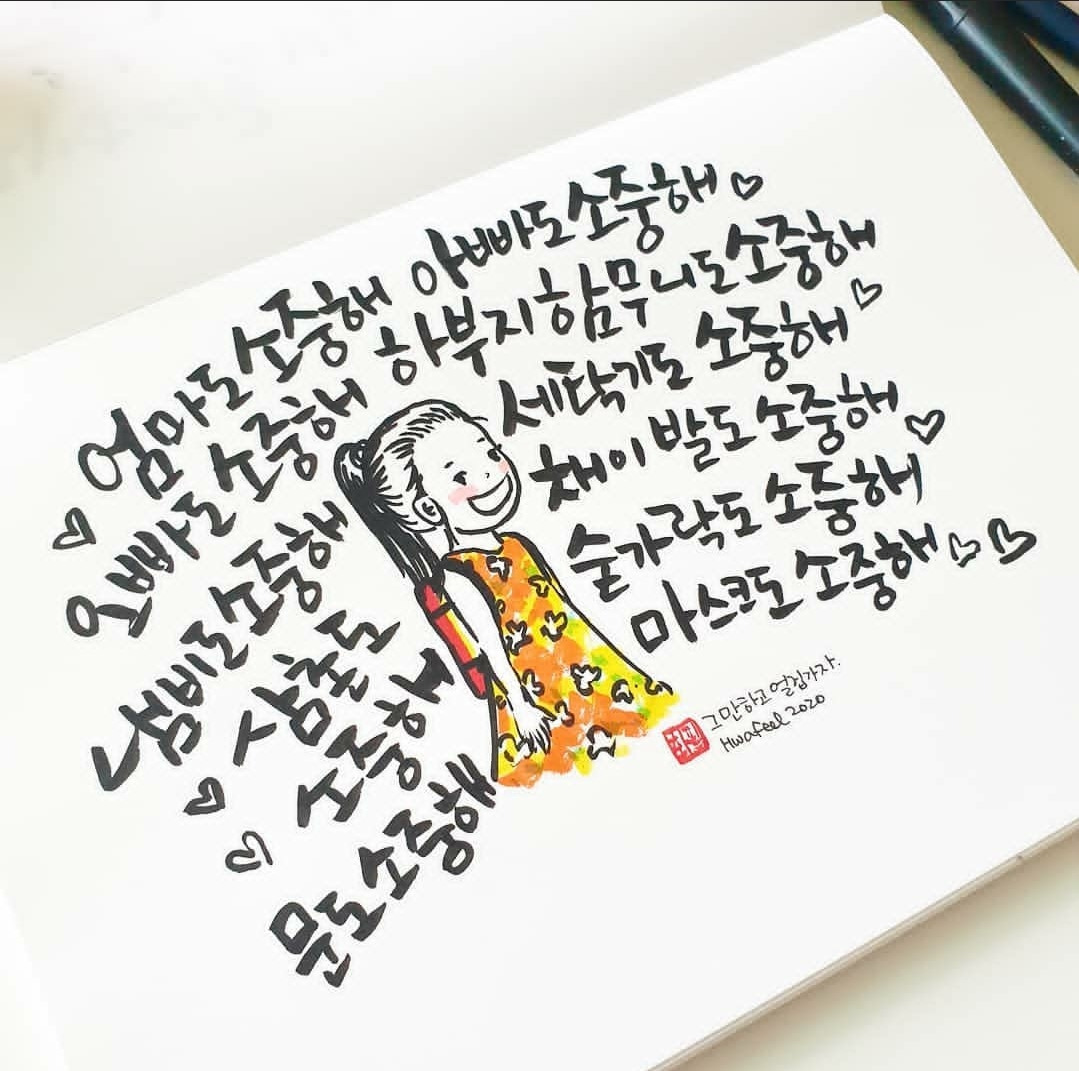 엄마도 소중해 아빠도 소중해
오빠도 소중해 하부지 함무니도 소중해
냄비도 소중해 세탁기도 소중해
삼촌도 소중해
문도 소중해
채이 발도 소중해
숟가락도 소중해
마스크도 소중해
그만하고 얼집가자.
Hwafeel 2020